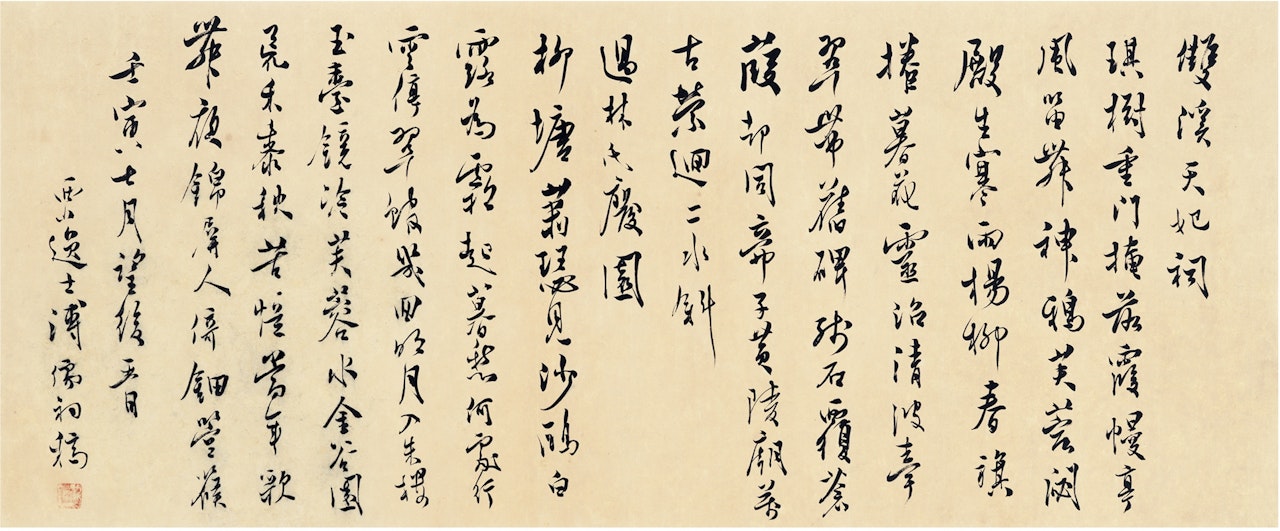 雙溪天妃祠
琪樹重門掩落霞幔亭
風笛舞神鴉芙蓉閟
殿生寒雨楊柳春旗
捲暮花靈沼清波牽
翠帶舊碑殘石覆蒼
葭却問帝子黃陵廟萬
古縈迴二水斜
過林氏廢園
柳塘蕭瑟見沙鷗白
露為霜起暮愁何處行
雲停翠幾回明月入朱樓
玉臺鏡冷芙蓉水金谷園
荒禾黍秋苦憶當年歌
舞夜錦屏人倚鈿箜篌
壬寅七月望後五日
西山逸士溥儒初稿